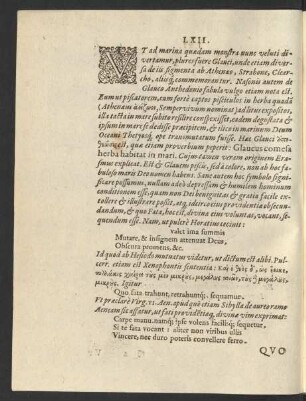 LXII.
VT ad marina quædam monstra nunc veluti di-
vertamur, plures fuere Glauci, unde etiam diver-
sa de iis segmenta ab Athenæo, Strabone, Clear-
cho, aliisq; commemorantur. Nasonis autem de
Glauco Anthedonio fabula vulgo etiam nota est.
Eum ut piscatorem, cum forte captos pisciculos in herba quadã
(Athenæum Semperuivum nominat) soli exposuisset,
illa tacta in mare subito resiliere conspexisset, eadem degustata &
ipsum in mare se dedisse præcipitem, & illic in marinum Deum
Oceani Thetyosq; ope transmutatum fuisse. Hæc Glauci
est, qua etiam proverbium peperit: Glaucus comesa
herba habitat in mari. Cujus tamen originem Eras-
mus explicat. Est & Glaucus piscis, sed à colore, non ab hoc fa-
buloso maris Deo nomen habens. Sanc autem hoc symbolo signi-
ficare possumus, nullam adeò depressam & humilem hominum
conditionem esse, qua non divinitus, cum volet, etiam facile extol-
lere & illustrare possit, atq; ideirco eius providentia abscondar-
dum, & quo Fata, hoc est, divina eius voluntas, vocant, se-
quendum esse. Nam, ut pulcrè Horatius cecinit:
valet ima summis
Mutare, & insignem attenuat Deus,
Obscura promens, &c.
Id quod ab Hesiodo mutuatus videtur, ut dictum est alibi. Pul-
cerr. etiam est Xenophontis sententia:
Igitur
Quo fata trahunt, retrahuntq;, sequamur.
Vt præclarè Virg. vt Æn. apud quē etiam Sibylla de aureo ramo
Æneam sic affatur, ut fati providentiāq; divinā vim exprimat:
Carpe manu. namq; ipse volens facilisq; sequetur,
Si te fata vocant: aliter non viribus ullis
Vincere, nec duro poteris convellere ferro.
QVO